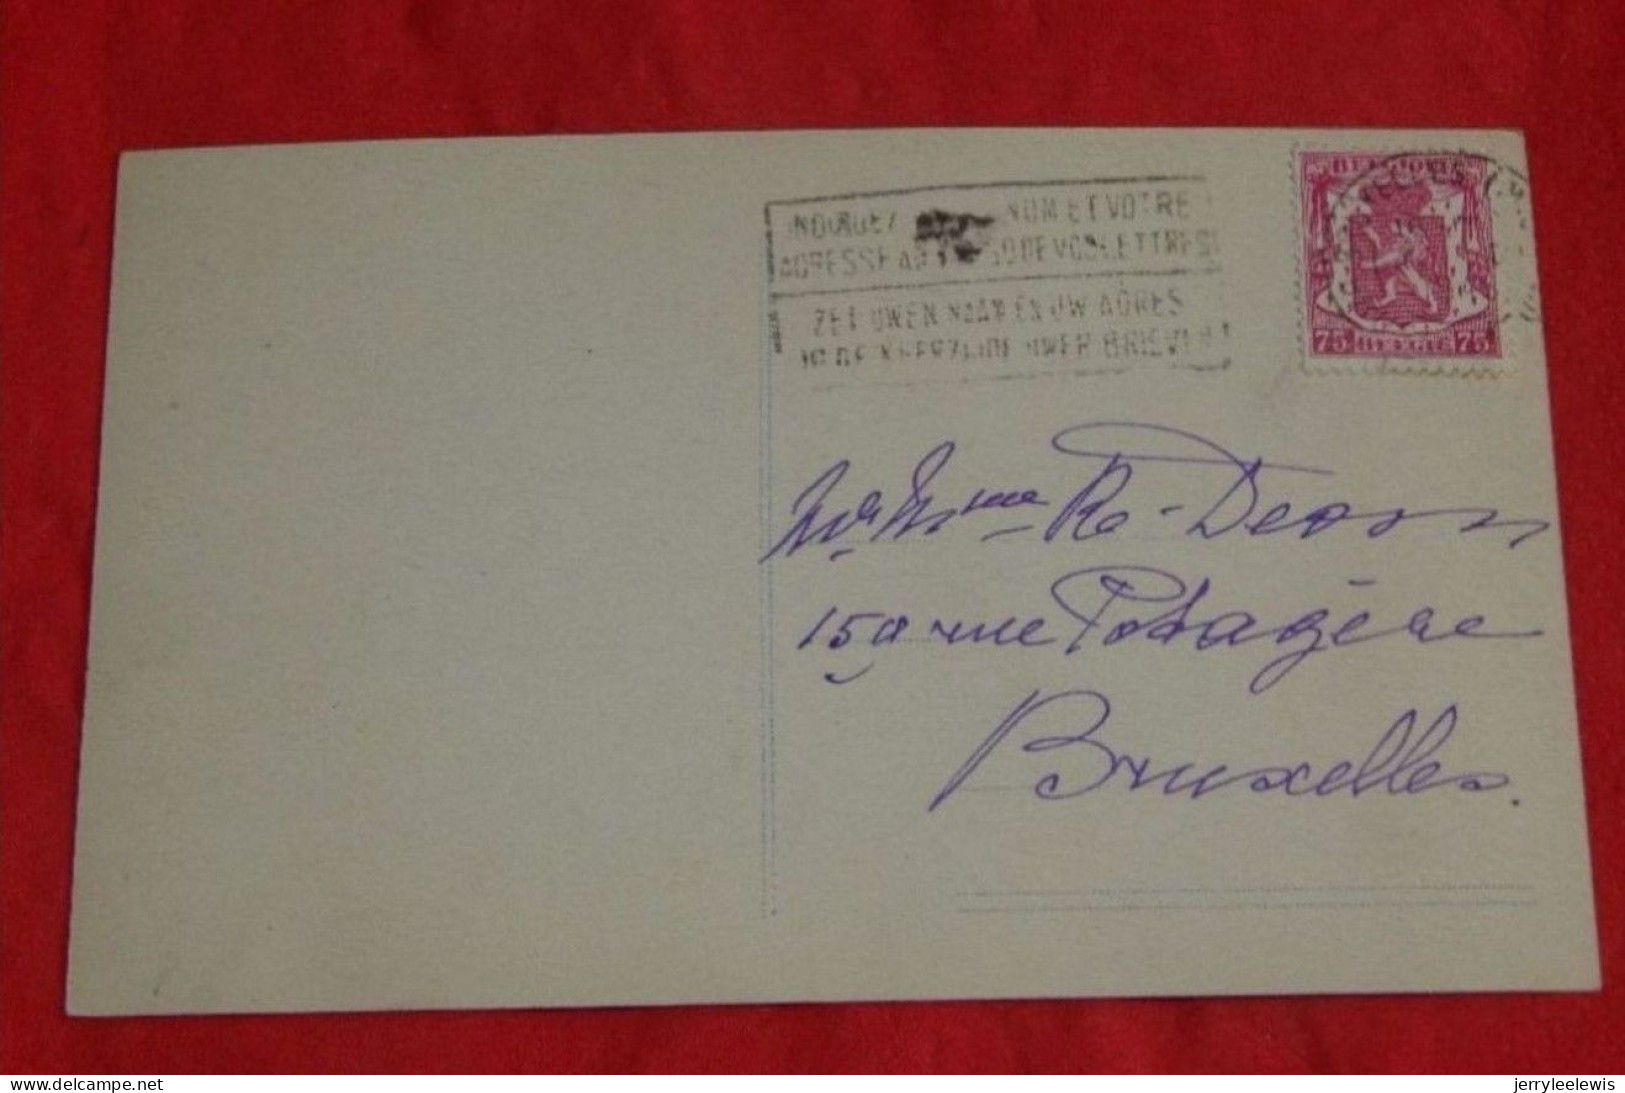 INDIQUEZ NOM ET VOTRE
ADRESSE AU DE VOS LETTRES
ZET UWEN NAAM EN UW ADRES
OP DE KEERZIJDE UWER BRIEVEN
BELGIQUE
75 BELGIË 75
Mr & Mme Re-Deom
159 rue Potagère
Bruxelles.
www.delcampe.net
jerryleelewis